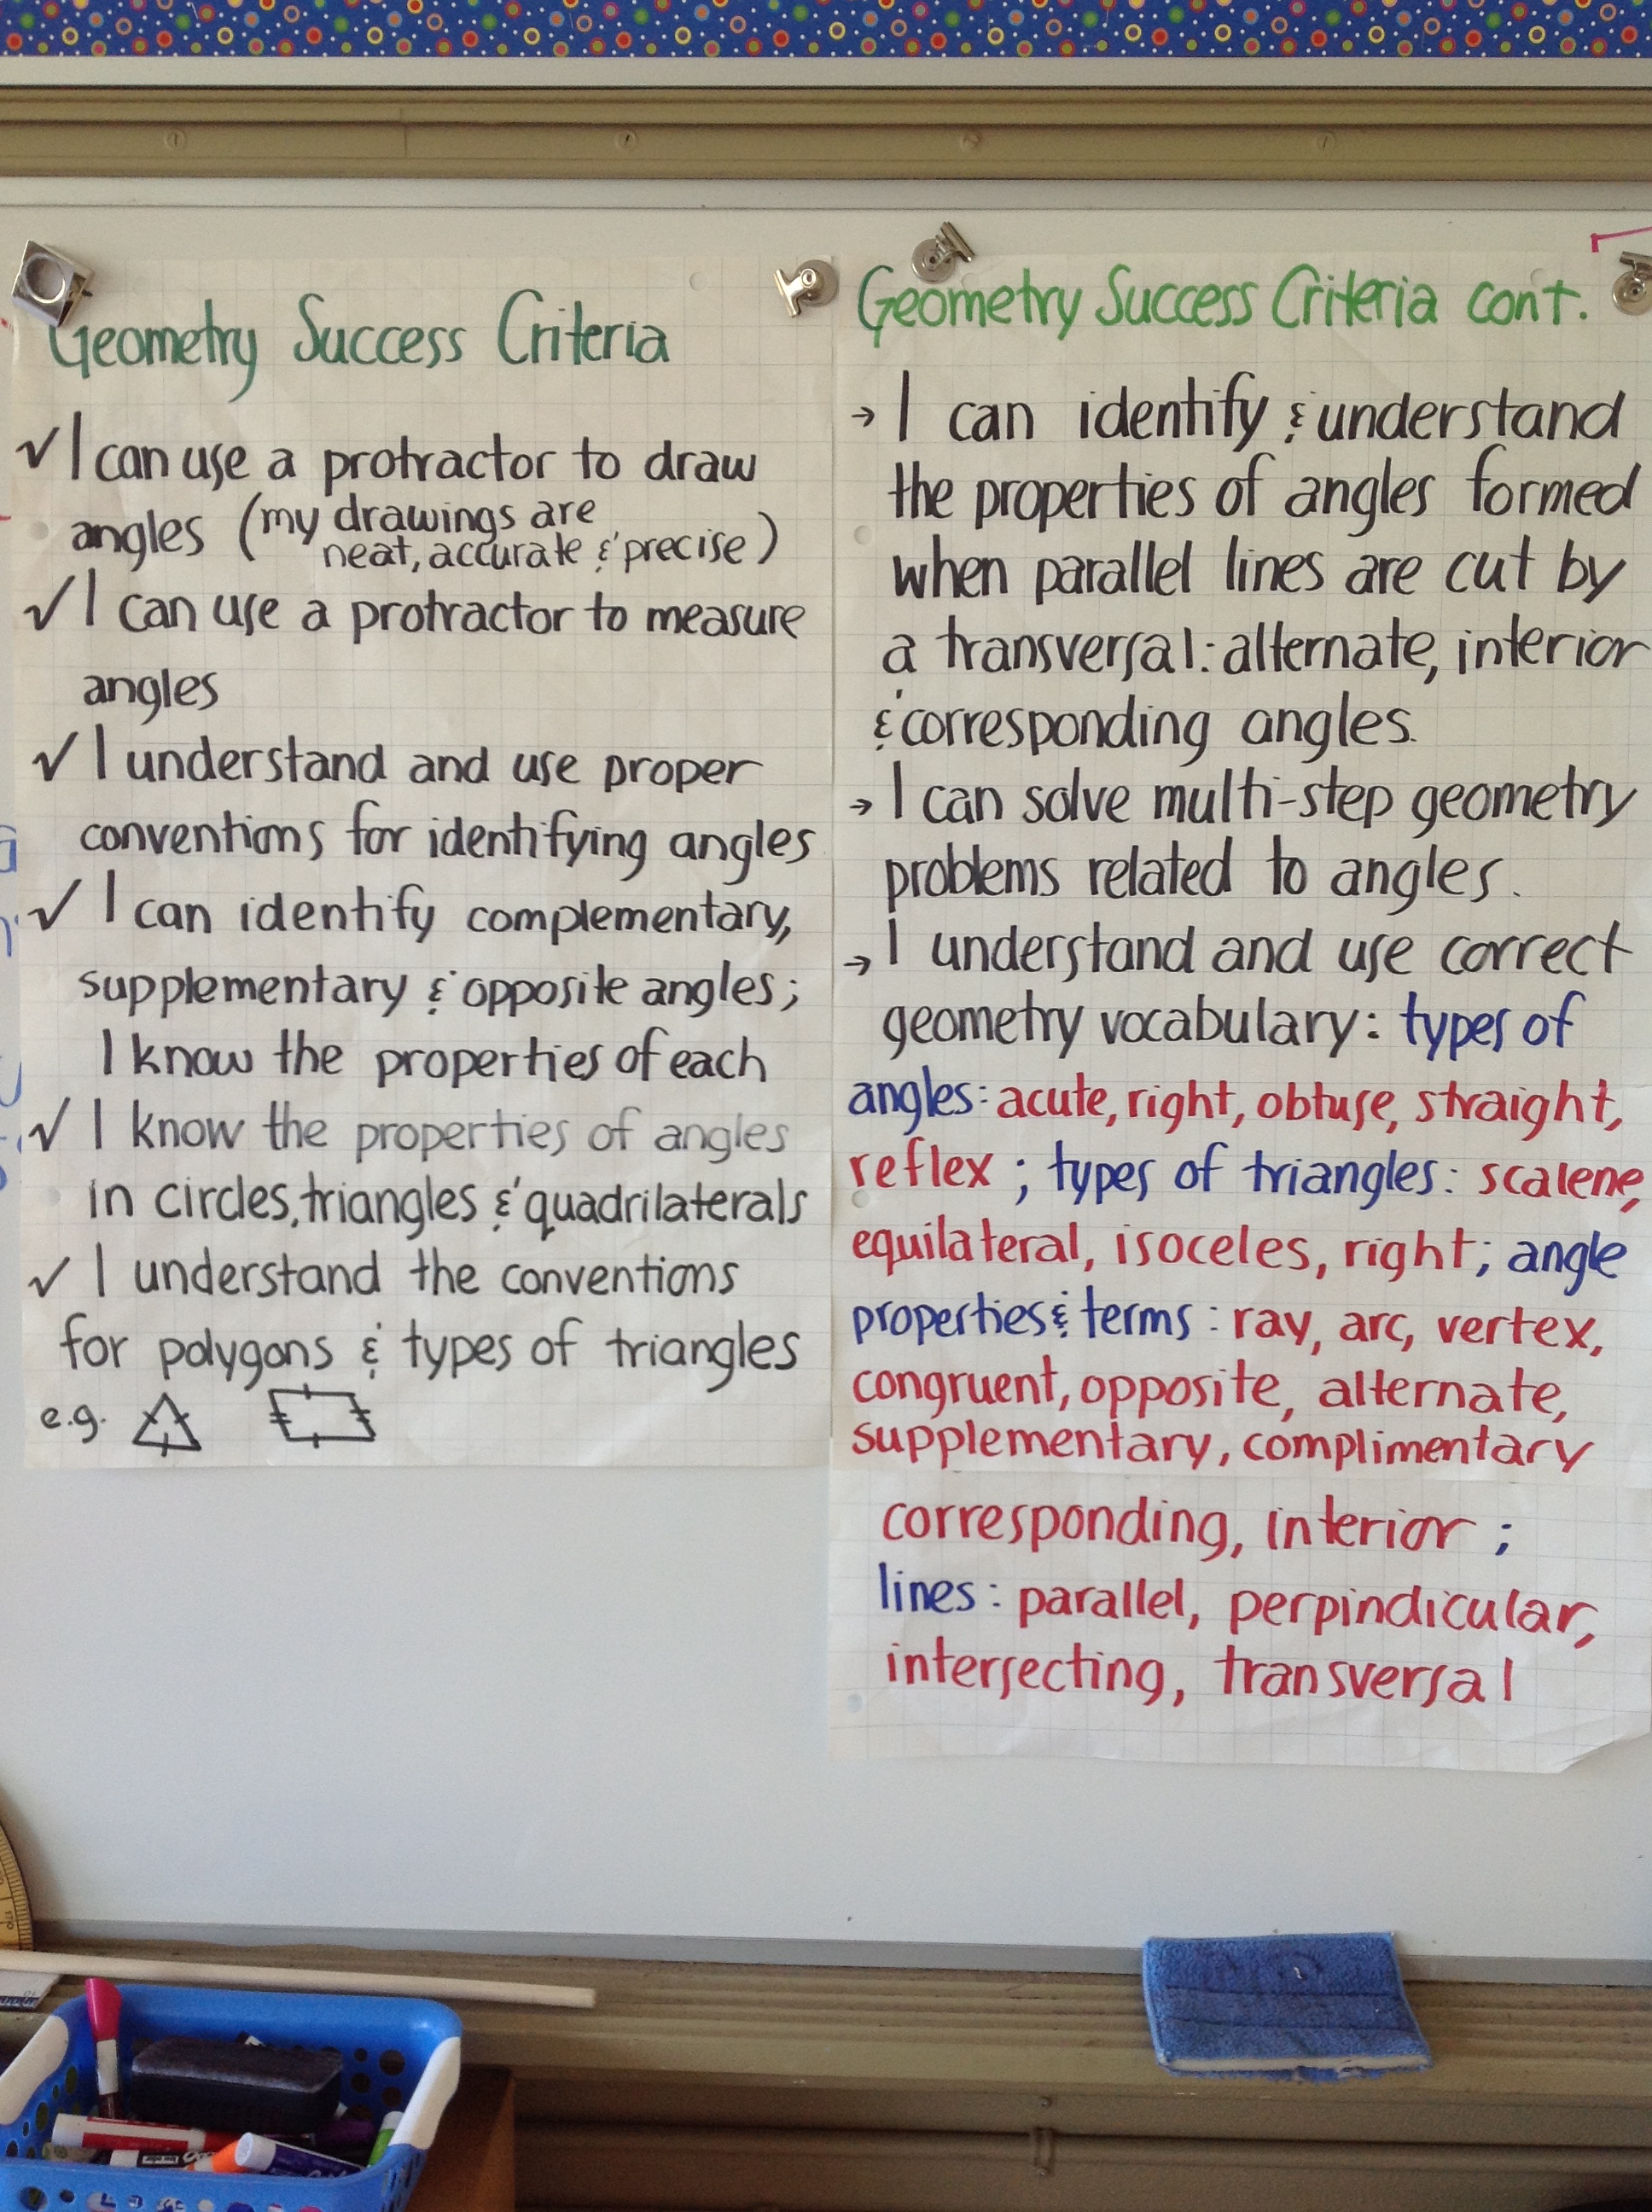 Geometry Success Criteria
✓ I can use a protractor to draw
angles (my drawings are
neat, accurate & precise)
✓ I can use a protractor to measure
angles
✓ I understand and use proper
conventions for identifying angles
✓ I can identify complementary,
supplementary & opposite angles;
I know the properties of each
✓ I know the properties of angles
in circles, triangles & quadrilaterals
✓ I understand the conventions
for polygons & types of triangles
e.g.
Geometry Success Criteria cont.
→ I can identify & understand
the properties of angles formed
when parallel lines are cut by
a transversal: alternate, interior
& corresponding angles.
→ I can solve multi-step geometry
problems related to angles.
→ I understand and use correct
geometry vocabulary: types of
angles: acute, right, obtuse, straight,
reflex; types of triangles: scalene,
equilateral, isoceles, right; angle
properties & terms: ray, arc, vertex,
congruent, opposite, alternate,
supplementary, complimentary
corresponding, interior;
lines: parallel, perpindicular,
intersecting, transversal
170